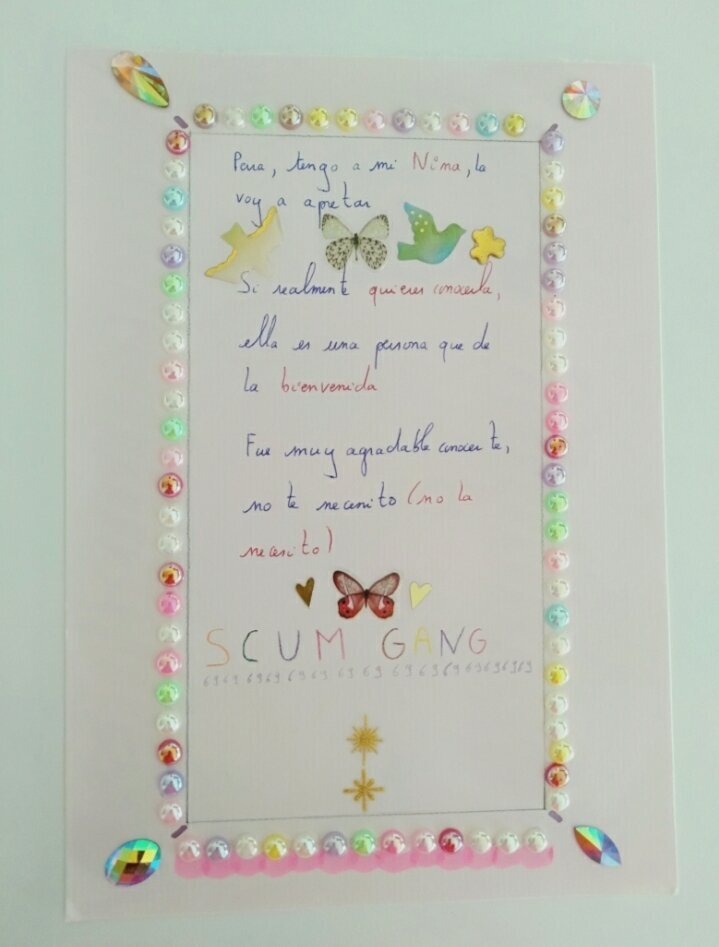 Perra, tengo a mi Nina, la
voy a apretar
Si realmente quieres conocerla,
ella es una persona que da
la bienvenida
Fue muy agradable conocerte,
no te necesito (no la
necesito)
SCUM GANG
6969 6969 69 69 69 69 69 69 6969696969